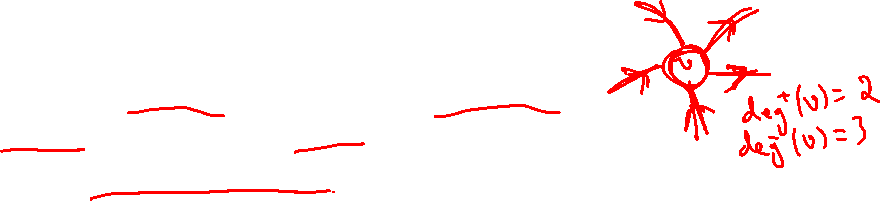 v
deg⁺(v) = 2
deg⁻(v) = 3